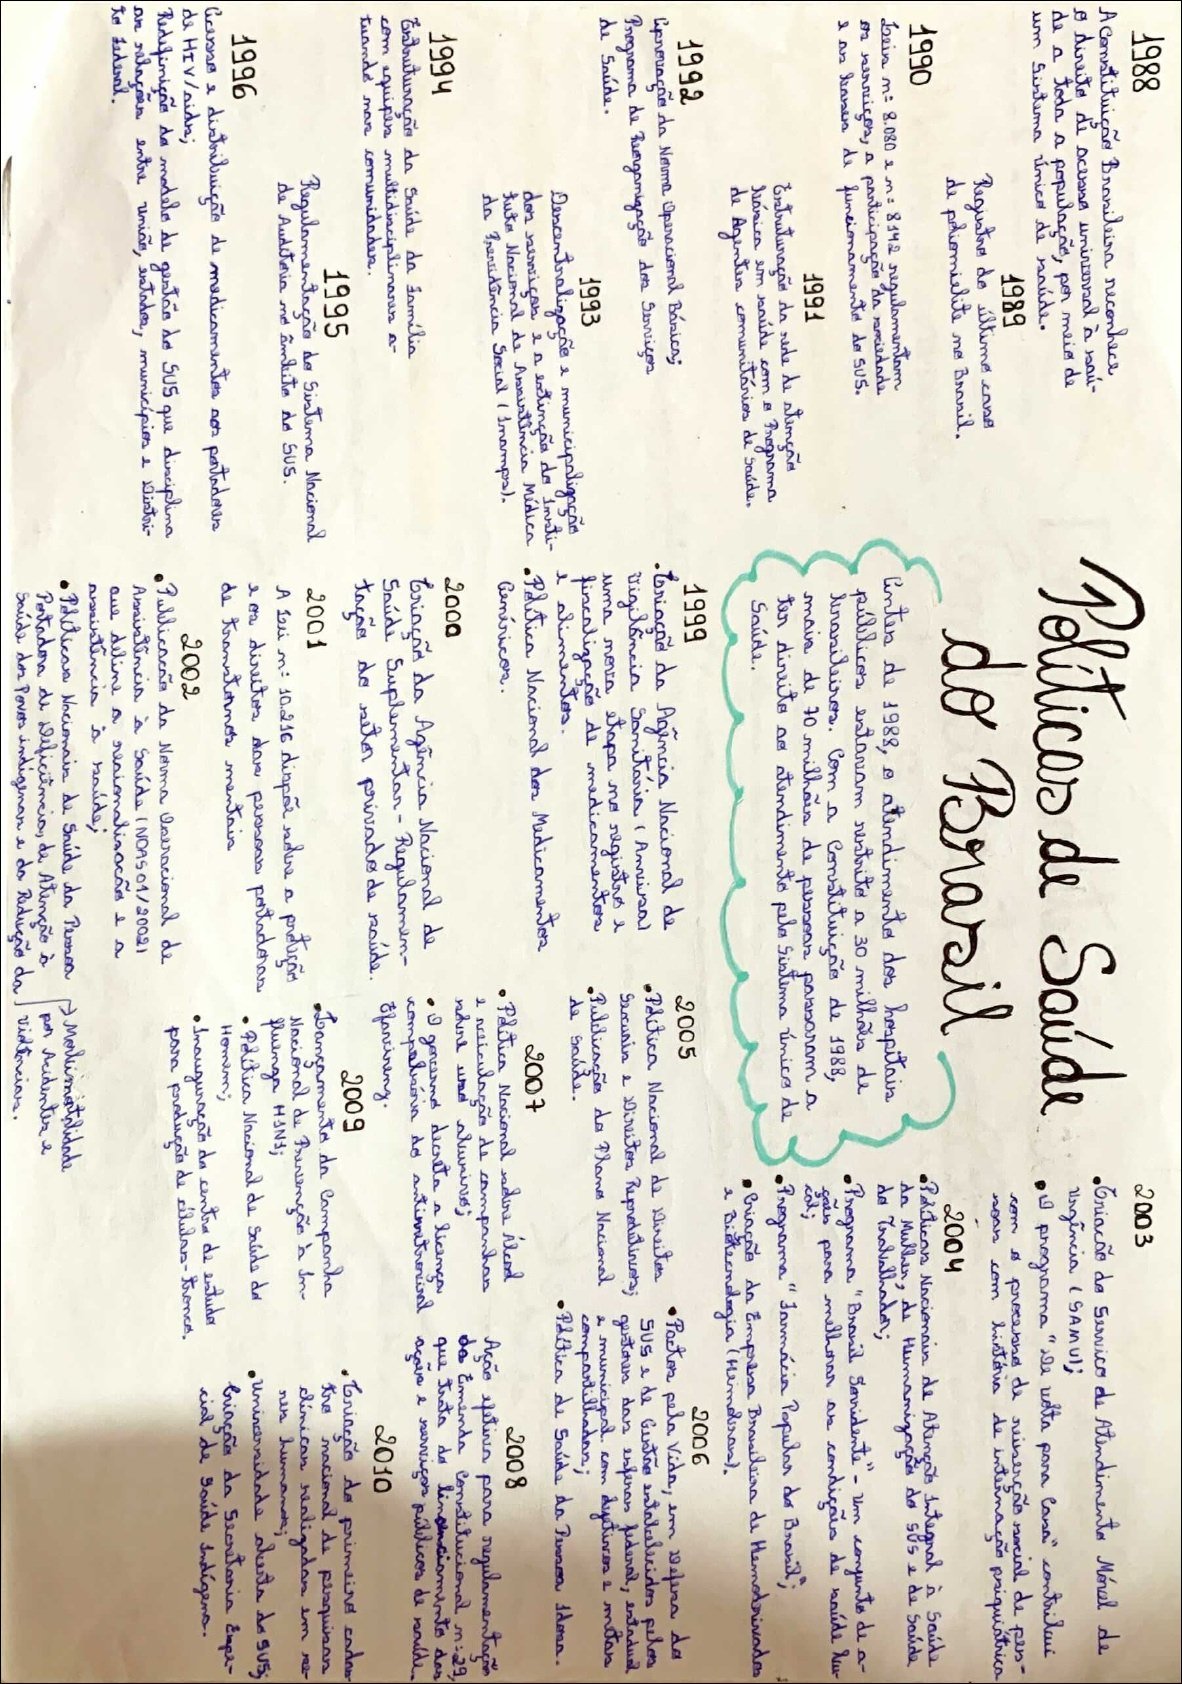 Políticas de Saúde
do Brasil
Antes de 1988, o atendimento dos hospitais
públicos estavam restrito a 30 milhões de
brasileiros. Com a Constituição de 1988,
mais de 70 milhões de pessoas passaram a
ter direito ao atendimento pelo Sistema Único de
Saúde.
1988
A Constituição Brasileira reconhece
o direito de acesso universal à saú-
de a toda a população, por meio de
um Sistema Único de saúde.
1989
Registro do último caso
de poliomielite no Brasil.
1990
Leis n: 8.080 e n: 8142 regulamentam
os serviços, a participação da sociedade
e as bases de funcionamento do SUS.
1991
Estruturação da rede de atenção
básica em saúde com o Programa
de Agentes comunitários de Saúde.
1992
Aprovação da Norma Operacional Básica;
Programa de Reorganização dos Serviços
de Saúde.
1993
Descentralização e municipalização
dos serviços e a extinção do Insti-
tuto Nacional de Assistência Médica
da Previdência Social (Inamps).
1994
Estruturação da Saúde da Família
com equipes multidisciplinares a-
tuando nas comunidades.
1995
Regulamentação do Sistema Nacional
de Auditoria no âmbito do SUS.
1996
Acesso e distribuição de medicamentos aos portadores
de HIV/aids;
Redefinição do modelo de gestão do SUS que disciplina
as relações entre união, estados, municípios e Distri-
to Federal.
1999
•Criação da Agência Nacional de
Vigilância Sanitária (Anvisa)
uma nova etapa no registro e
fiscalização de medicamentos
e alimentos.
•Política Nacional dos Medicamentos
Genéricos.
2000
Criação da Agência Nacional de
Saúde Suplementar - Regulamen-
tação do setor privado de saúde.
2001
A Lei n: 10.216 dispõe sobre a proteção
e os direitos das pessoas portadoras
de transtornos mentais
2002
•Publicação da Norma Operacional de
Assistência à Saúde (NOAS 01/2002)
que define a regionalização e a
assistência à saúde;
•Políticas Nacionais de Saúde da Pessoa
Portadora de Deficiência, de Atenção à
Saúde dos Povos indígenas e da Redução da
→ Morbimortalidade
por acidentes e
violências.
2003
•Criação do Serviço de Atendimento Móvel de
Urgência (SAMU);
•O programa "De volta para Casa" contribui
com o processo de reinserção social de pes-
soas com história de internação psiquiátrica
2004
•Políticas Nacionais de Atenção Integral à Saúde
da Mulher, de Humanização do SUS e de Saúde
do Trabalhador;
•Programa "Brasil Sorridente" - um conjunto de a-
ções para melhorar as condições de saúde bu-
cal;
•Programa "Farmácia Popular do Brasil";
•Criação da Empresa Brasileira de Hemoderivados
e Biotecnologia (Hemobras).
2005
•Política Nacional de Direitos
Sexuais e Direitos Reprodutivos;
•Publicação do Plano Nacional
de Saúde.
2006
•Pactos pela Vida, em defesa do
SUS e de Gestão estabelecidos pelos
gestores das esferas federal, estadual
e municipal com objetivos e metas
compartilhadas;
•Política de Saúde da Pessoa Idosa.
2007
•Política Nacional sobre Álcool
e veiculação de campanhas
sobre uso abusivo;
•O governo decreta a licença
compulsória do antirretroviral
Efavirenz.
2008
Ação efetiva para regulamentação
da Emenda Constitucional n:29,
que trata do financiamento das
ações e serviços públicos de saúde.
2009
•Lançamento da Campanha
Nacional de Prevenção à In-
fluenza H1N1;
•Política Nacional de Saúde do
Homem;
•Inauguração do centro de estudo
para produção de células-tronco.
2010
•Criação do primeiro cadas-
tro nacional de pesquisas
clínicas realizadas em se-
res humanos;
•Universidade aberta do SUS;
Criação da Secretaria Espe-
cial de Saúde Indígena.